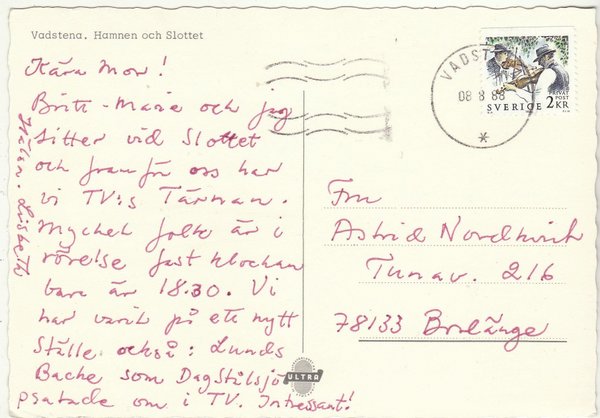 Vadstena. Hamnen och Slottet
Kära Mor!
Britt-Marie och jag
sitter vid Slottet
och framför oss har
vi TV:s Tärnan.
Mycket folk är i
rörelse fast klockan
bara är 18.30. Vi
har varit på ett nytt
ställe också: Lunds
Backe som Dag Stålsjö
pratade om i TV. Intressant!
Hälsn. Lisbeth
VADST
08 8 88
SVERIGE 2 KR
PRIVAT
POST
*
Fru
Astrid Nordkvist
Tunav. 216
78133 Borlänge
ULTRA